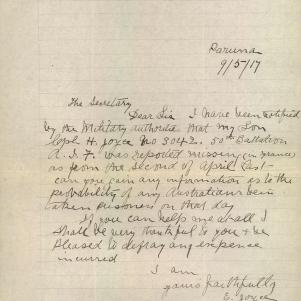 Paruna
9/5/17
The Secretary
Dear Sir I have been notified
by the Military authorities that my Son
Corpl H. Joyce No 3042. 50th Battalion
A.I.F. was reported missing (in France)
as from the Second of April last
can you gain any information as to the
probability of any Australians being
taken prisoners on that day
If you can help me at all I
shall be very thankful to you & be
pleased to defray any expense
incurred
I am
yours faithfully
E. Joyce